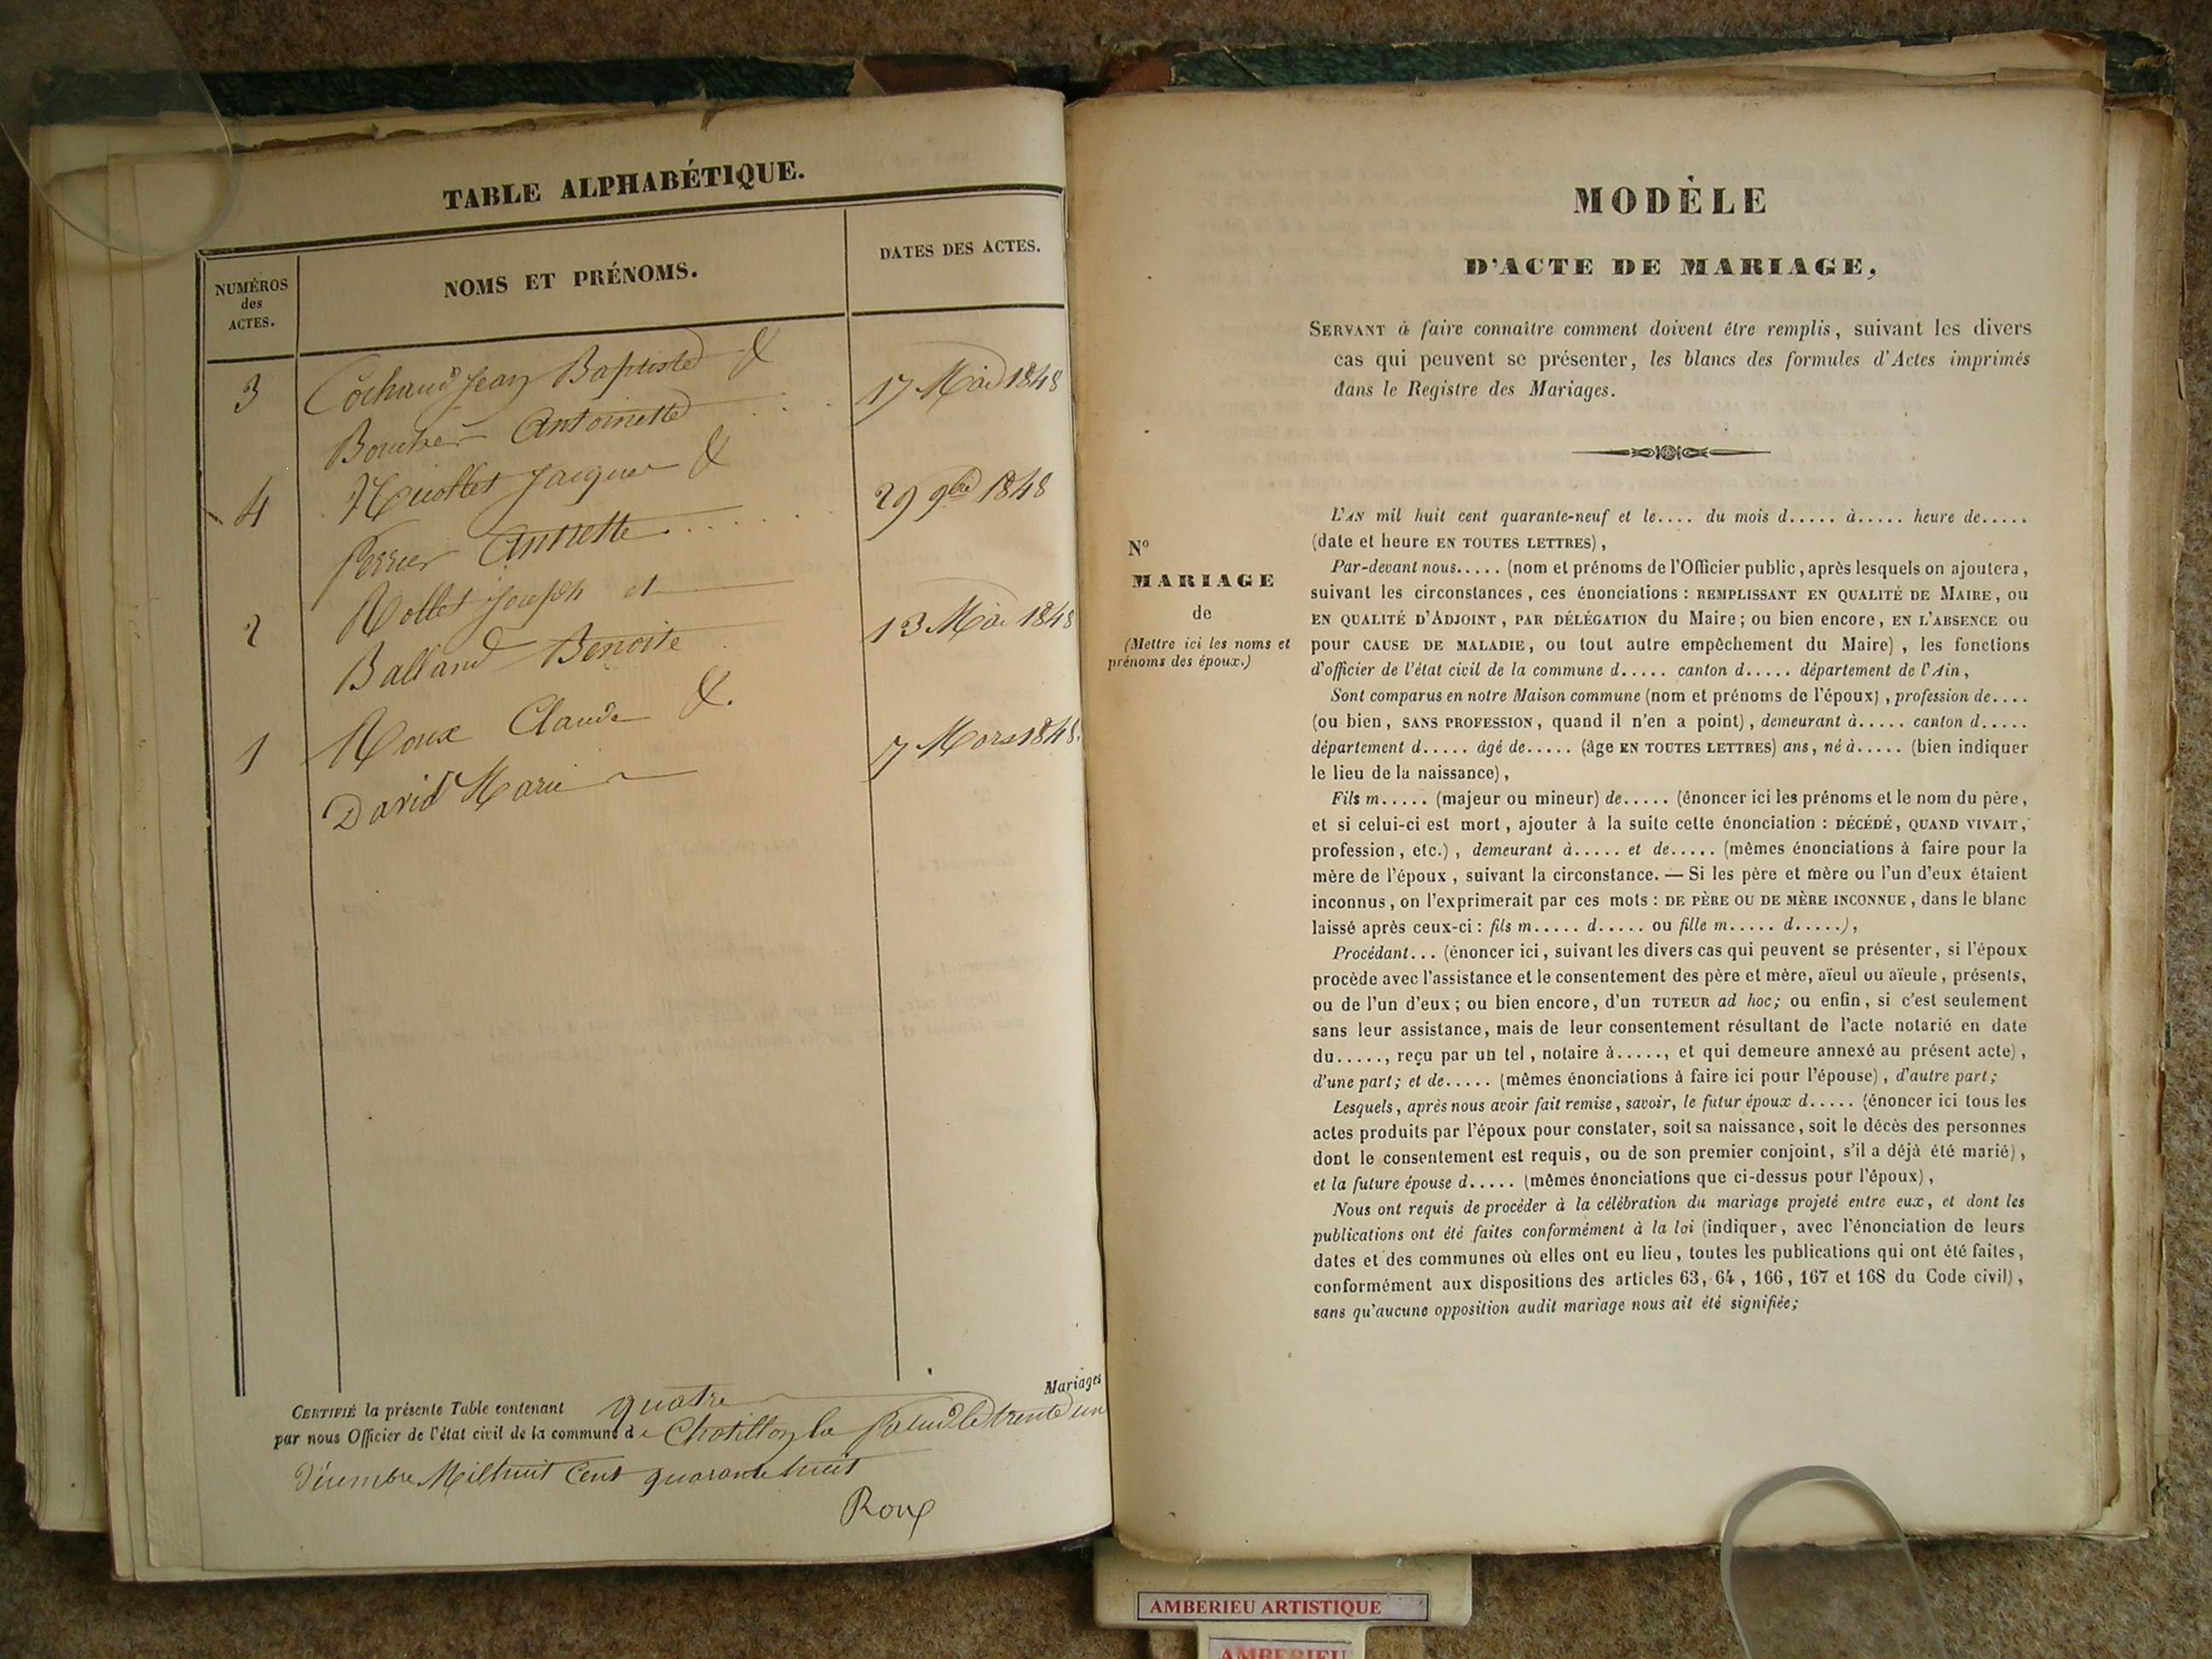 TABLE ALPHABÉTIQUE.
NUMÉROS
des
ACTES.
NOMS ET PRÉNOMS.
DATES DES ACTES.
3 Cochaud Jean Baptiste &
Boucher Antoinette 17 Mai 1848
4 Nicollet Jacques &
Perrier Annette 29 9bre 1848
2 Rollet Joseph et
Balland Benoite 13 Mai 1848
1 Roux Claude &.
David Marie 7 Mars 1848.
CERTIFIÉ la présente Table contenant quatre Mariages
par nous Officier de l'état civil de la commune de Chatillon la Palud le trente un
Décembre Mil huit Cent quarante huit
Roux
MODÈLE
D'ACTE DE MARIAGE,
SERVANT à faire connaître comment doivent être remplis, suivant les divers
cas qui peuvent se présenter, les blancs des formules d'Actes imprimés
dans le Registre des Mariages.
N°
MARIAGE
de
(Mettre ici les noms et
prénoms des époux.)
L'AN mil huit cent quarante-neuf et le.... du mois d..... à..... heure de.....
(date et heure EN TOUTES LETTRES),
Par-devant nous..... (nom et prénoms de l'Officier public, après lesquels on ajoutera,
suivant les circonstances, ces énonciations : REMPLISSANT EN QUALITÉ DE MAIRE, ou
EN QUALITÉ D'ADJOINT, PAR DÉLÉGATION du Maire; ou bien encore, EN L'ABSENCE ou
pour CAUSE DE MALADIE, ou tout autre empêchement du Maire), les fonctions
d'officier de l'état civil de la commune d..... canton d..... département de l'Ain,
Sont comparus en notre Maison commune (nom et prénoms de l'époux), profession de....
(ou bien, SANS PROFESSION, quand il n'en a point), demeurant à..... canton d.....
département d..... âgé de..... (âge EN TOUTES LETTRES) ans, né à..... (bien indiquer
le lieu de la naissance),
Fils m..... (majeur ou mineur) de..... (énoncer ici les prénoms et le nom du père,
et si celui-ci est mort, ajouter à la suite cette énonciation : DÉCÉDÉ, QUAND VIVAIT,
profession, etc.), demeurant à..... et de..... (mêmes énonciations à faire pour la
mère de l'époux, suivant la circonstance. — Si les père et mère ou l'un d'eux étaient
inconnus, on l'exprimerait par ces mots : DE PÈRE OU DE MÈRE INCONNUE, dans le blanc
laissé après ceux-ci : fils m..... d..... ou fille m..... d.....),
Procédant... (énoncer ici, suivant les divers cas qui peuvent se présenter, si l'époux
procède avec l'assistance et le consentement des père et mère, aïeul ou aïeule, présents,
ou de l'un d'eux; ou bien encore, d'un TUTEUR ad hoc; ou enfin, si c'est seulement
sans leur assistance, mais de leur consentement résultant de l'acte notarié en date
du....., reçu par un tel, notaire à....., et qui demeure annexé au présent acte),
d'une part; et de..... (mêmes énonciations à faire ici pour l'épouse), d'autre part;
Lesquels, après nous avoir fait remise, savoir, le futur époux d..... (énoncer ici tous les
actes produits par l'époux pour constater, soit sa naissance, soit le décès des personnes
dont le consentement est requis, ou de son premier conjoint, s'il a déjà été marié),
et la future épouse d..... (mêmes énonciations que ci-dessus pour l'époux),
Nous ont requis de procéder à la célébration du mariage projeté entre eux, et dont les
publications ont été faites conformément à la loi (indiquer, avec l'énonciation de leurs
dates et des communes où elles ont eu lieu, toutes les publications qui ont été faites,
conformément aux dispositions des articles 63, 64, 166, 167 et 168 du Code civil),
sans qu'aucune opposition audit mariage nous ait été signifiée;
AMBERIEU ARTISTIQUE
AMBERIEU